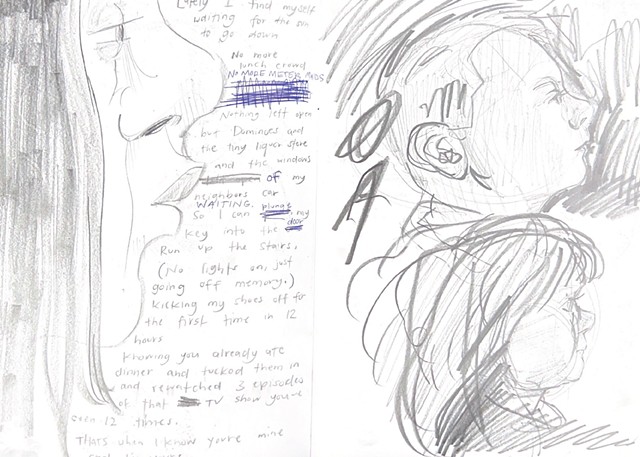 Lately I find myself
waiting for the sun
to go down
No more
lunch crowd
NO MORE METER MAIDS
Nothing left open
but Dominoes and
the tiny liquor store
and the windows
of my
neighbors car
WAITING.
So I can plunge my
key into the door
Run up the stairs.
(No lights on, just
going off memory.)
kicking my shoes off for
the first time in 12
hours
knowing you already ate
dinner and tucked them in
and rewatched 3 episodes
of that TV show you've
seen 12 times.
THATS when I know you're mine